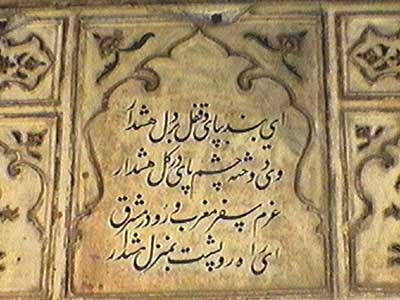 ای بند بپای قفل بر دل هشدار
وی دوخته چشم پای در گل هشدار
عزم سفر مغرب و رو در مشرق
ای راه رو پشت بمنزل هشدار